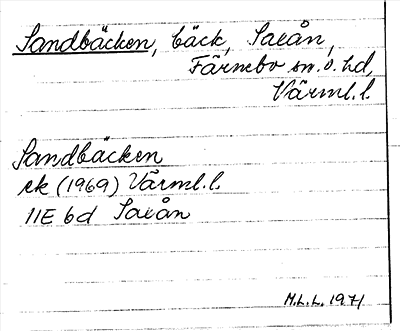 Sandbäcken, bäck, Saxån,
Färnebo sn.o.hd,
Värml.l.
Sandbäcken
ek (1969) Värml.l.
11E 6d Saxån
M.L.L. 1971